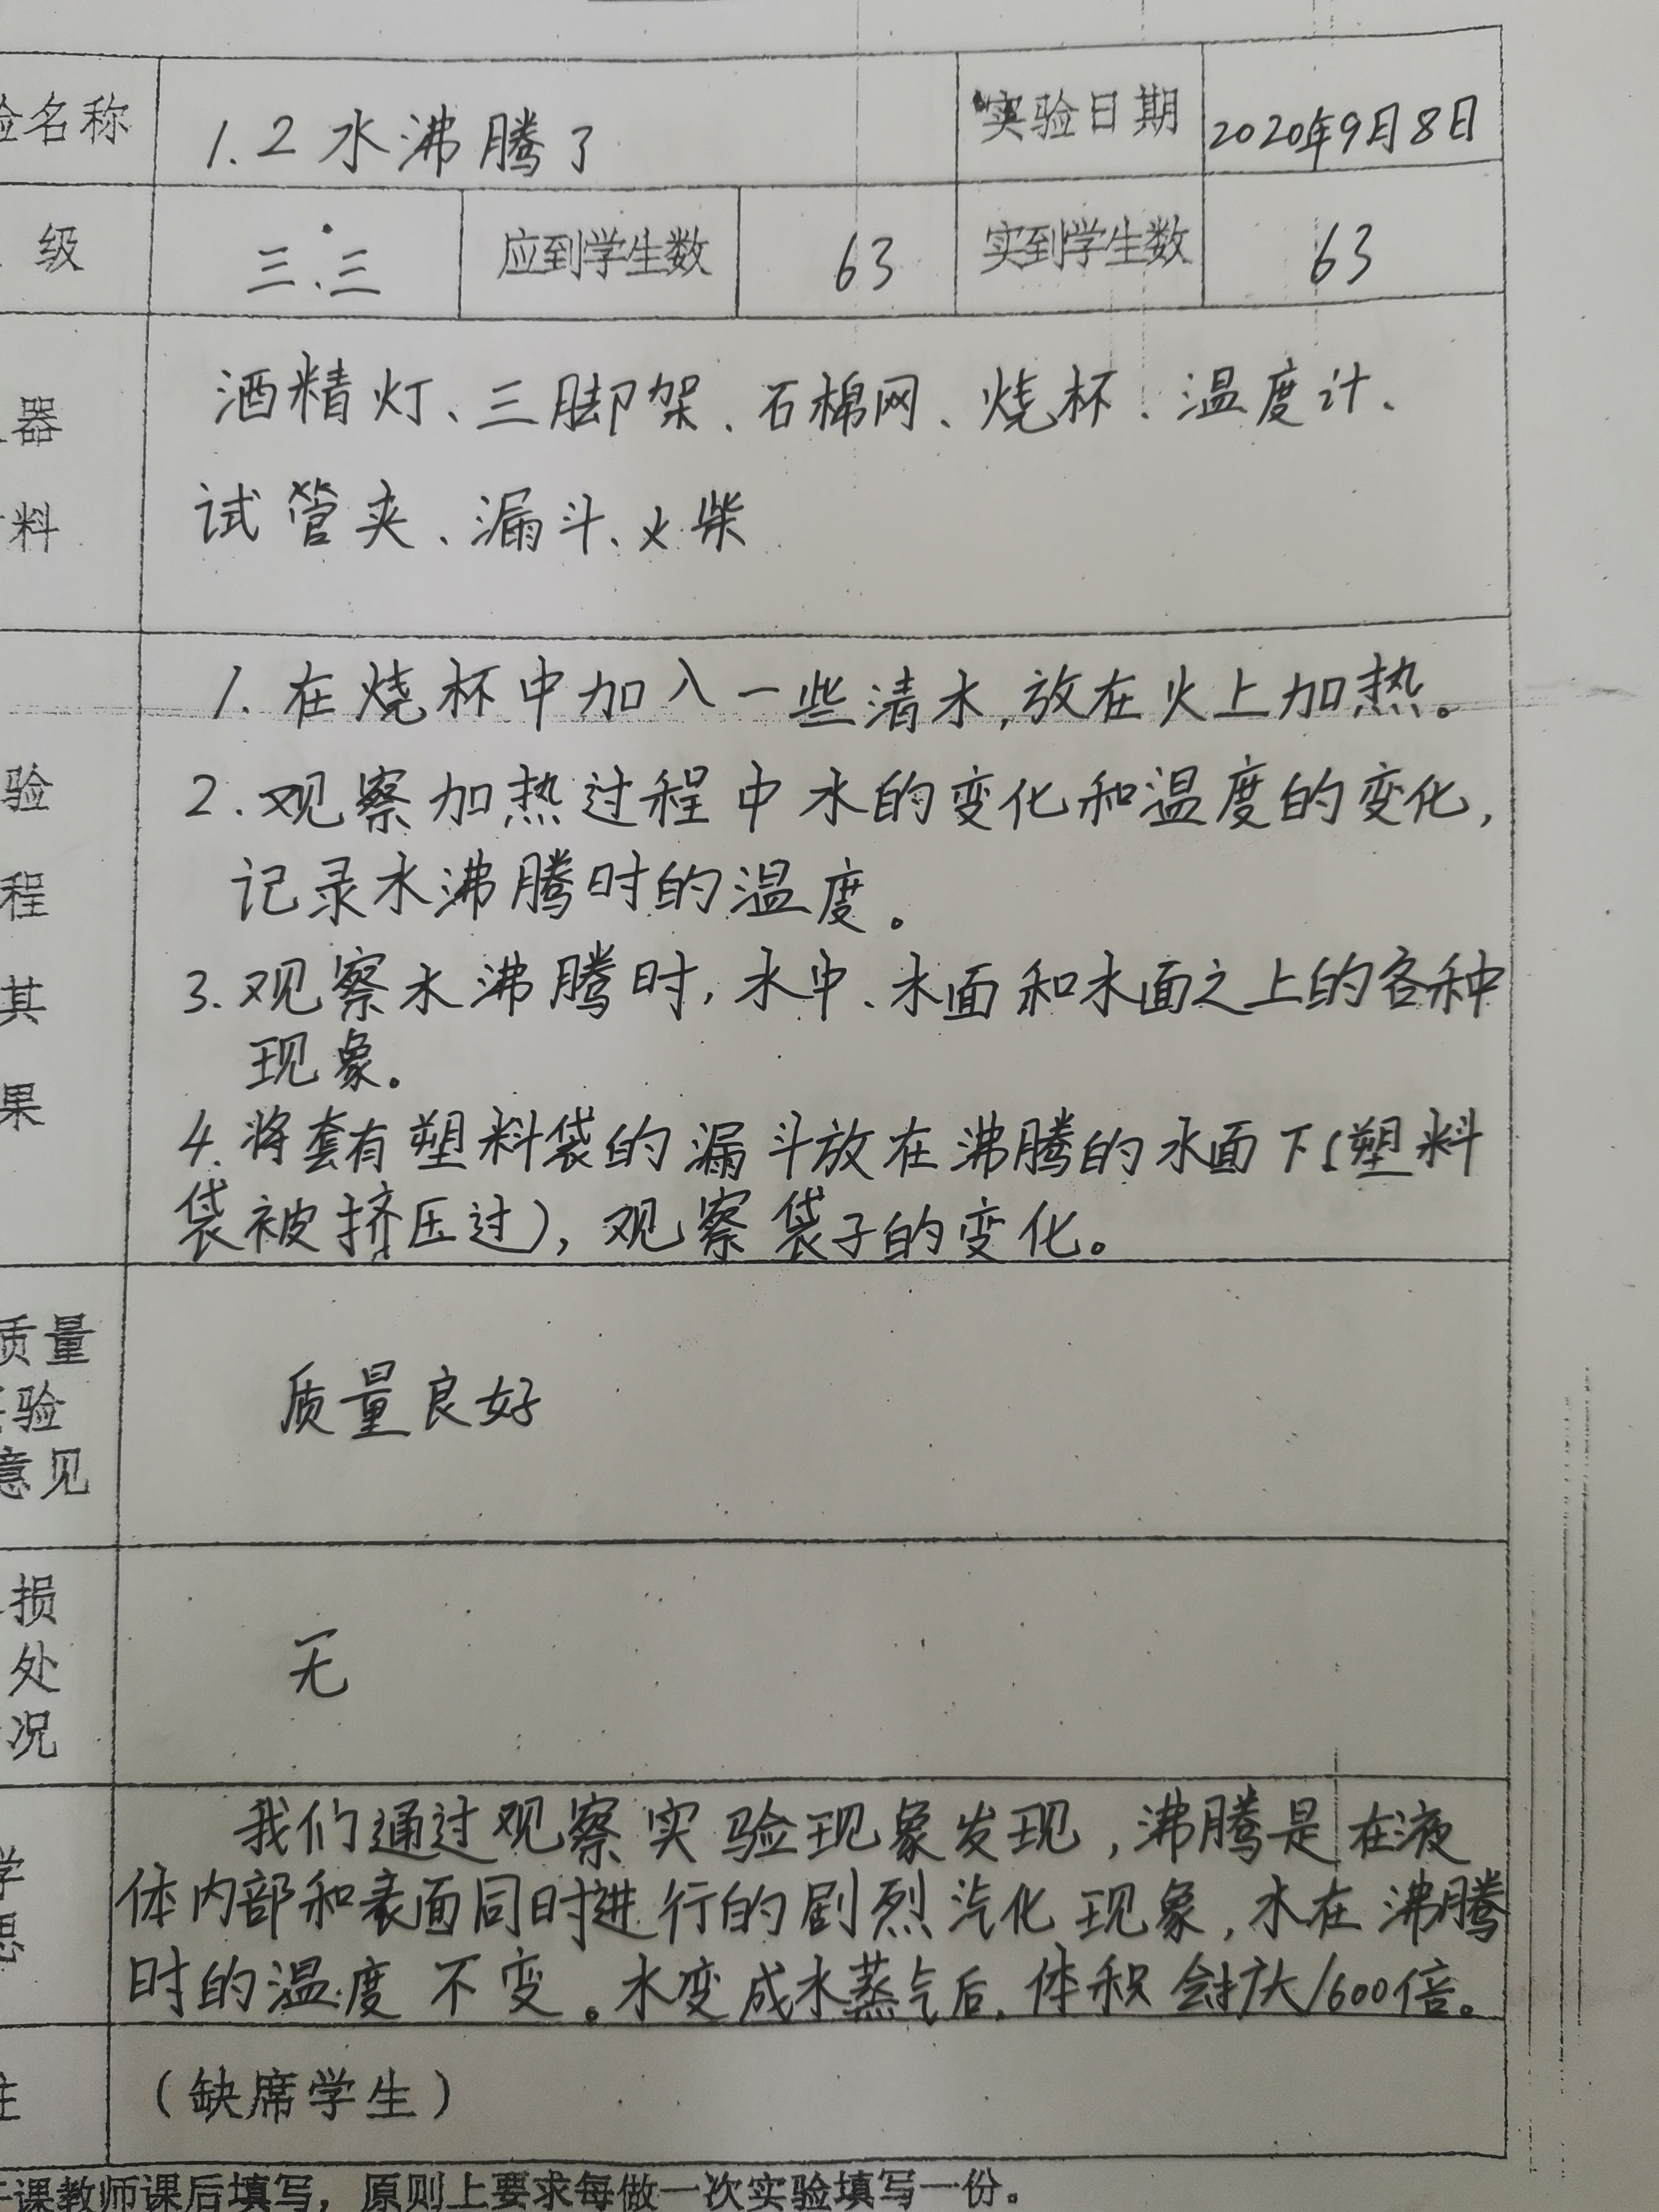 验名称 1.2 水沸腾了 实验日期 2020年9月8日
级 三.三 应到学生数 63 实到学生数 63
器 酒精灯、三脚架、石棉网、烧杯、温度计、
料 试管夹、漏斗、火柴
1. 在烧杯中加入一些清水,放在火上加热。
验 2. 观察加热过程中水的变化和温度的变化,
程 记录水沸腾时的温度。
其 3. 观察水沸腾时,水中、水面和水面之上的各种
现象。
果 4. 将套有塑料袋的漏斗放在沸腾的水面下(塑料
袋被挤压过),观察袋子的变化。
质量
验 质量良好
意见
损
处 无
况
我们通过观察实验现象发现,沸腾是在液
学 体内部和表面同时进行的剧烈汽化现象,水在沸腾
思 时的温度不变。水变成水蒸气后,体积会扩大1600倍。
注 (缺席学生)
课教师课后填写,原则上要求每做一次实验填写一份。